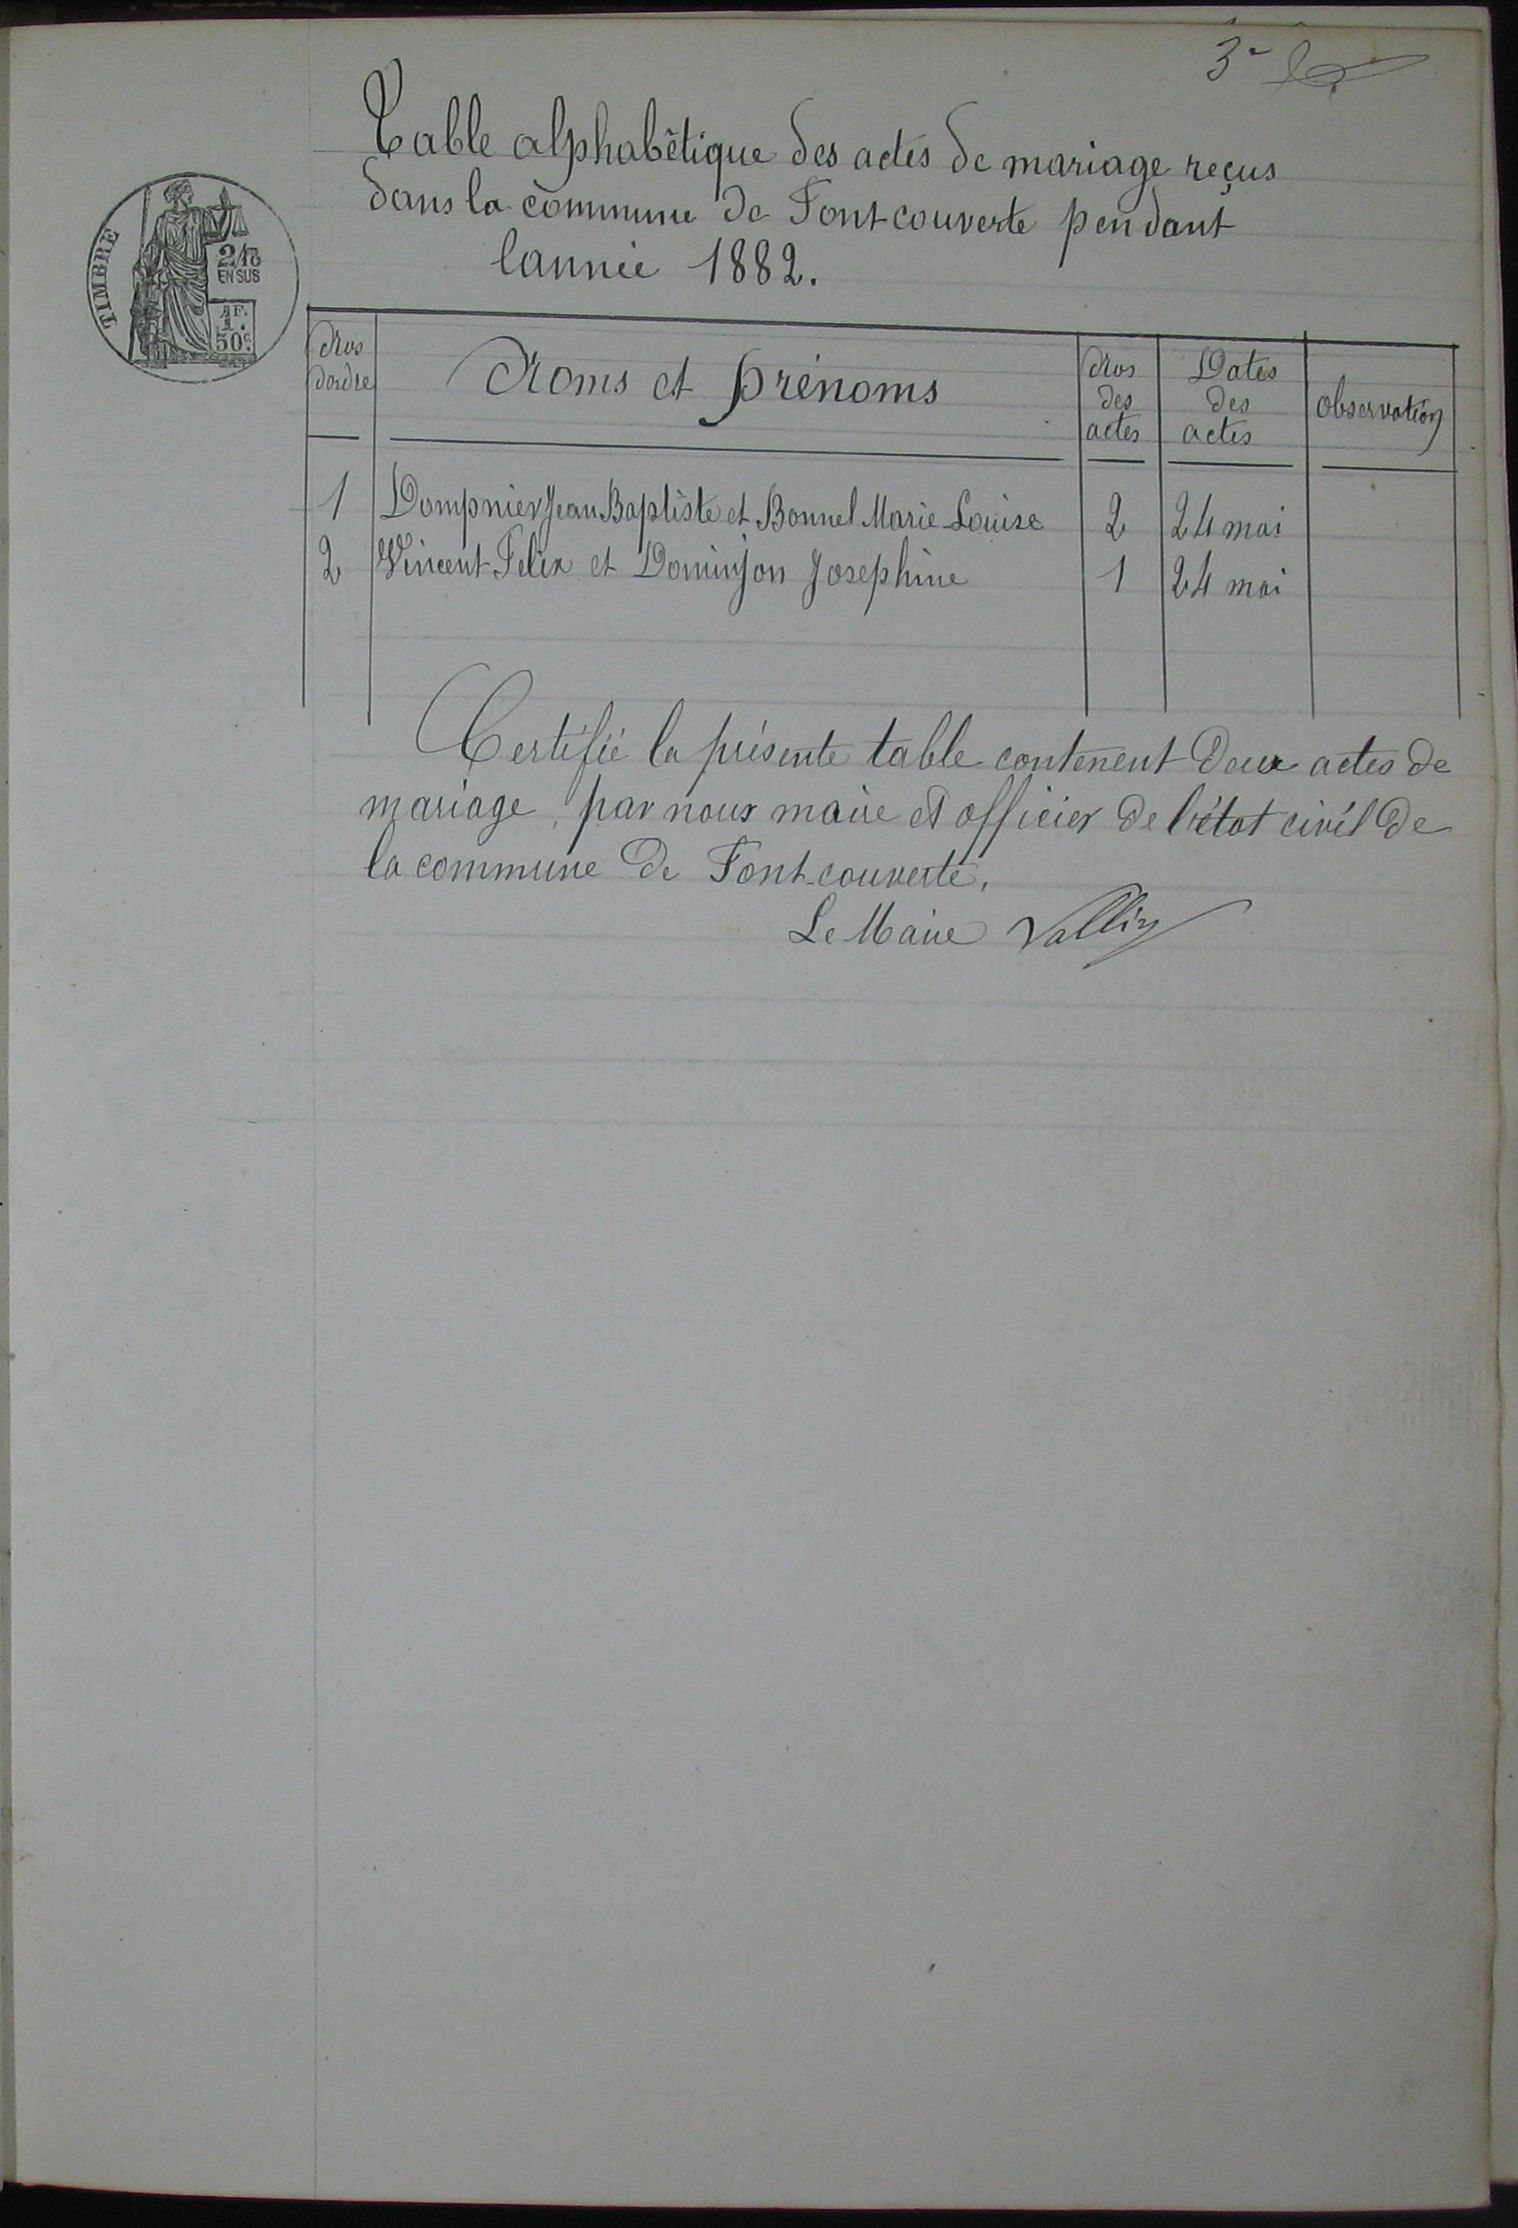 3e
Table alphabétique des actes de mariage reçus
dans la commune de Fontcouverte pendant
lannée 1882.
TIMBRE
2/10
EN SUS
1F.
50c.
Nos
dordre
Noms et prénoms
Nos
des
actes
Dates
des
actes
Observation
1 Dompnier Jean Baptiste et Bonnel Marie Louise 2 24 mai
2 Vincent Felix et Dominjon Josephine 1 24 mai
Certifié la présente table contenent deux actes de
mariage, par nous maire et officier de l'état civil de
la commune de Fontcouverte.
Le Maire Vallin